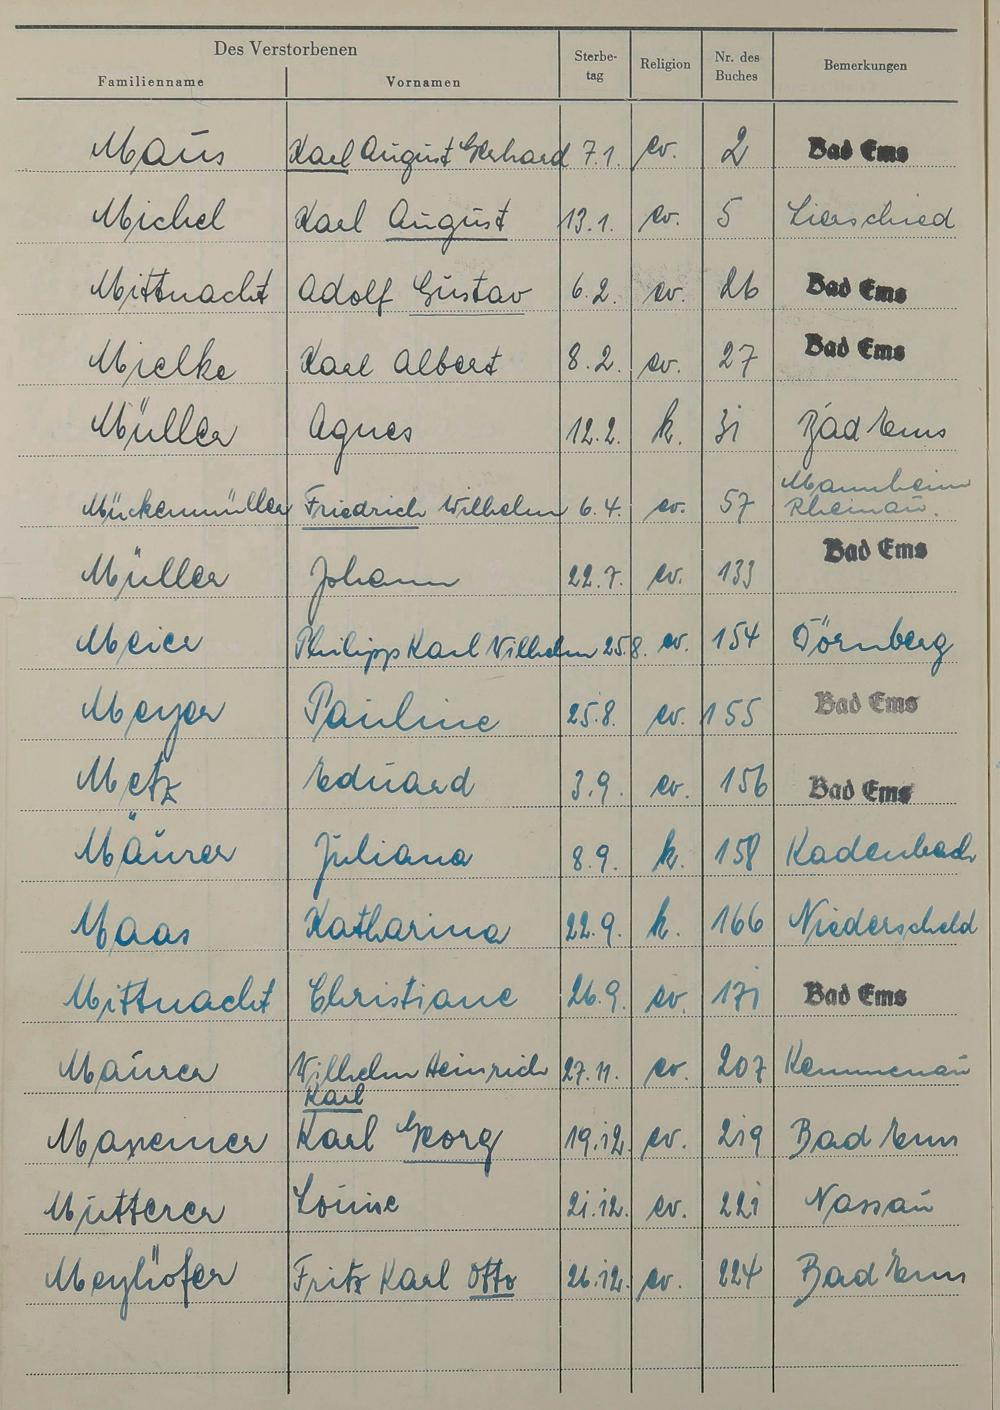 Des Verstorbenen
Familienname Vornamen Sterbe-tag Religion Nr. des Buches Bemerkungen
Maus Karl August Gerhard 7.1. ev. 2 Bad Ems
Michel Karl August 13.1. ev. 5 Lierschied
Mittnacht Adolf Gustav 6.2. ev. 26 Bad Ems
Mielke Karl Albert 8.2. ev. 27 Bad Ems
Müller Agnes 12.2. k. 31 Bad Ems
Mückenmüller Friedrich Wilhelm 6.4. ev. 57 Mannheim Rheinau.
Müller Johann 22.7. ev. 133 Bad Ems
Meier Philipp Karl Wilhelm 25.8. ev. 154 Dörnberg
Meyer Pauline 25.8. ev. 155 Bad Ems
Metz Eduard 3.9. ev. 156 Bad Ems
Mäurer Juliana 8.9. k. 158 Kadenbach
Maas Katharina 22.9. k. 166 Niederscheld
Mittnacht Christiane 26.9. ev 171 Bad Ems
Maurer Wilhelm Heinrich Karl 27.11. ev. 207 Kemmenau
Maxeiner Karl Georg 19.12. ev. 219 Bad Ems
Mutterer Louise 21.12. ev. 221 Nassau
Meyhöfer Fritz Karl Otto 26.12. ev. 224 Bad Ems